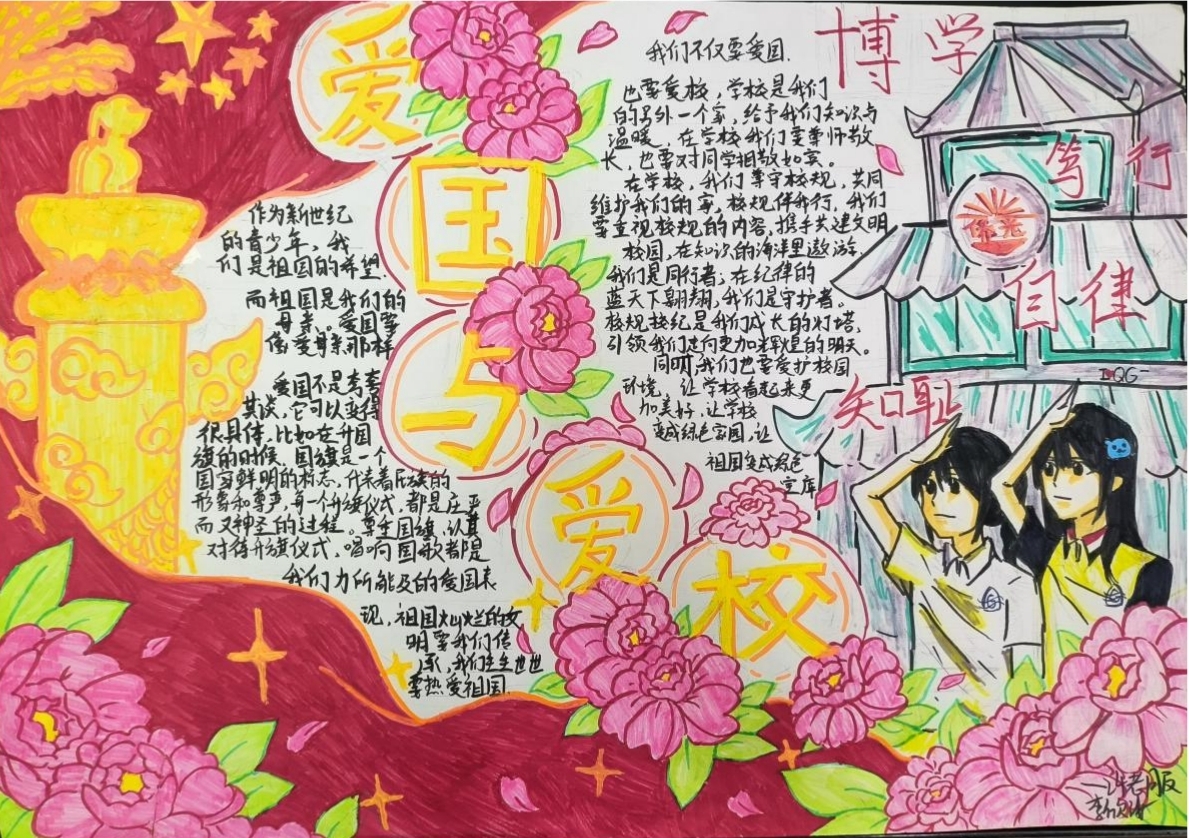 爱
国
与
爱
校
作为新世纪
的青少年，我
们是祖国的希望.
而祖国是我们的
母亲。爱国要
像爱母亲那样
爱国不是夸夸
其谈，它可以变得
很具体，比如在升国
旗的时候，国旗是一个
国家鲜明的标志，代表着民族的
形象和尊严，每一个升旗仪式，都是庄严
而又神圣的过程。尊重国旗，认真
对待升旗仪式，唱响国歌都是
我们力所能及的爱国表
现，祖国灿烂的文
明要我们传
承，我们生生世世
要热爱祖国
我们不仅要爱国.
也要爱校，学校是我们
的另外一个家，给予我们知识与
温暖，在学校我们要尊师敬
长，也要对同学相敬如宾。
在学校，我们遵守校规，共同
维护我们的家，校规伴我行，我们
要重视校规的内容，携手共建文明
校园，在知识的海洋里遨游.
我们是同行者；在纪律的
蓝天下翱翔，我们是守护者。
校规校纪是我们成长的灯塔，
引领我们走向更加辉煌的明天。
同时，我们也要爱护校园
环境，让学校看起来更
加美好，让学校
变成绿色家园，让
祖国变成绿色
宝库
博学
笃行
自律
知耻
DQG